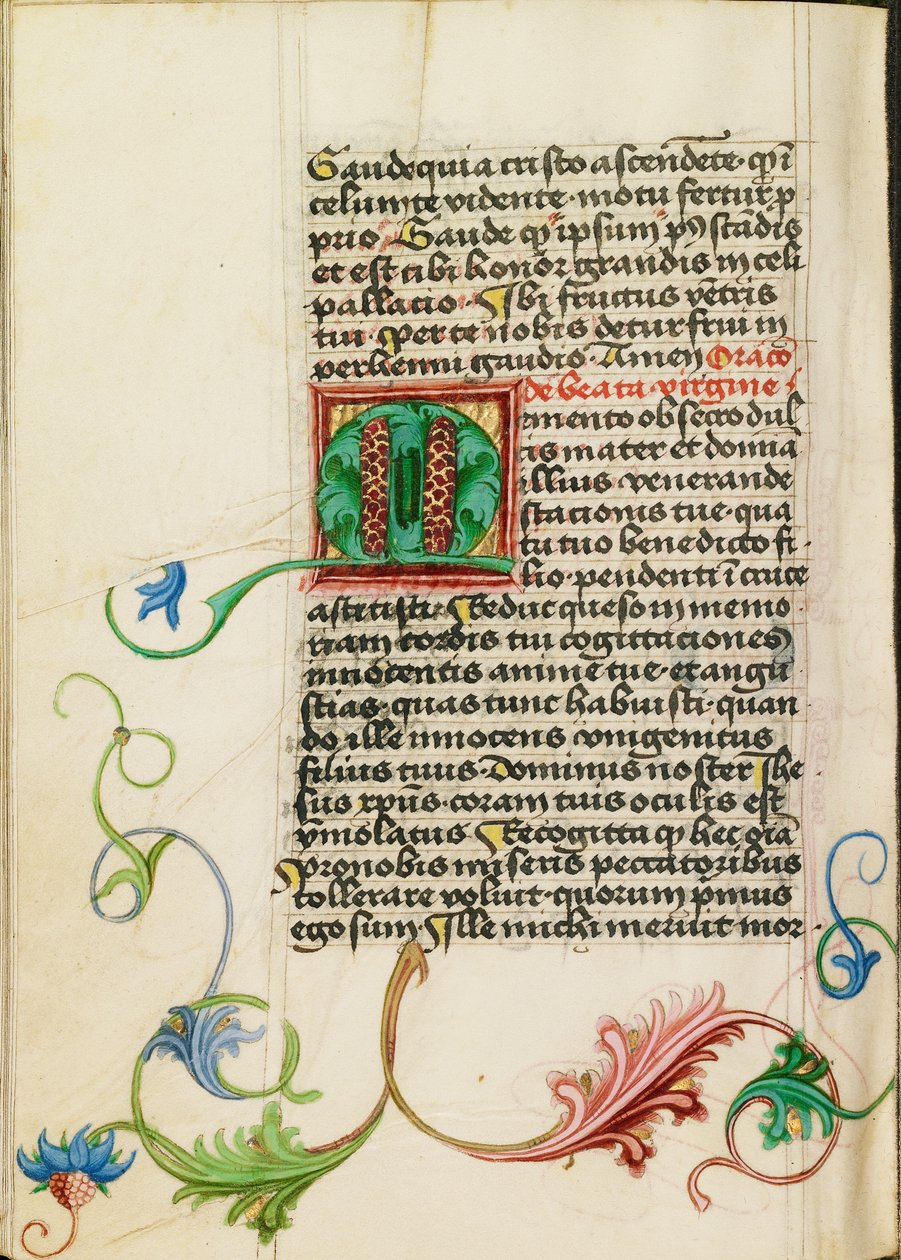 Gaude quia cristo ascendēte · qͥ ī
celum te vidente · motu fertur ꝓ
prio Gaude qͥ ipsum pꝰ scādis
et est tibi honor grandis in celi
pallacio · Ibi fructus vētris
tui · Per te nobis detur frui in
perhenni gaudio · Amen Oracō
de beata virgine
Memento obsecro dul
cis mater et domīa
illius venerande
stacionis tue · qua
cū tuo benedicto fi
lio · pendenti ī cruce
astitisti · Reduc queso in memo
riam cordis tui cogittaciones
innocentis anime tue · et angu
stias · quas tunc habuisti · quan
do ille innocens vnigenitus
filius tuus · Dominus noster Ihe
sus xpūs · coram tuis oculis est
ymolatus Recogitta qͥ hec oīa
Pro nobis miseris peccatoribus
tollerare voluit · quorum pͥmus
ego sum · Ille michi meruit mor